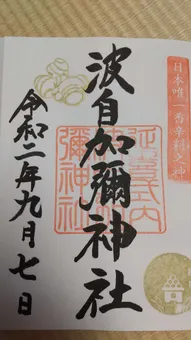 日本唯一香辛料之神
波自加彌神社
延喜式内
彌神社
令和二年九月七日